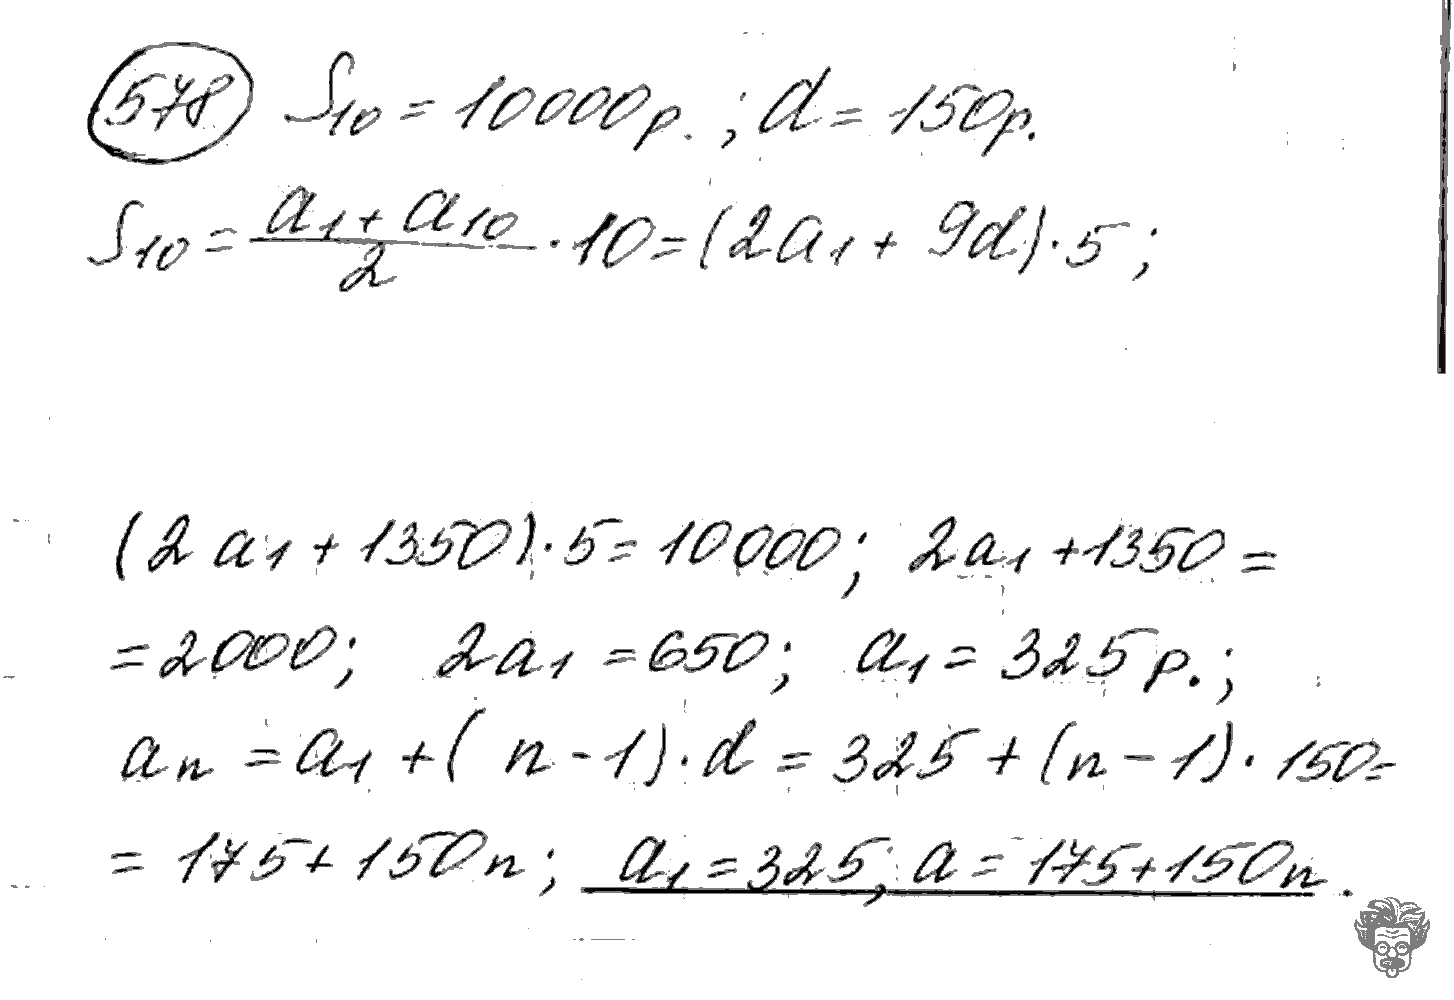 578 S₁₀ = 10000р. ; d = 150р.
S₁₀ = (a₁ + a₁₀)/2 · 10 = (2a₁ + 9d) · 5 ;
(2a₁ + 1350) · 5 = 10000; 2a₁ + 1350 =
= 2000; 2a₁ = 650; a₁ = 325 р. ;
aₙ = a₁ + (n - 1) · d = 325 + (n - 1) · 150 =
= 175 + 150n; a₁ = 325; a = 175 + 150n.